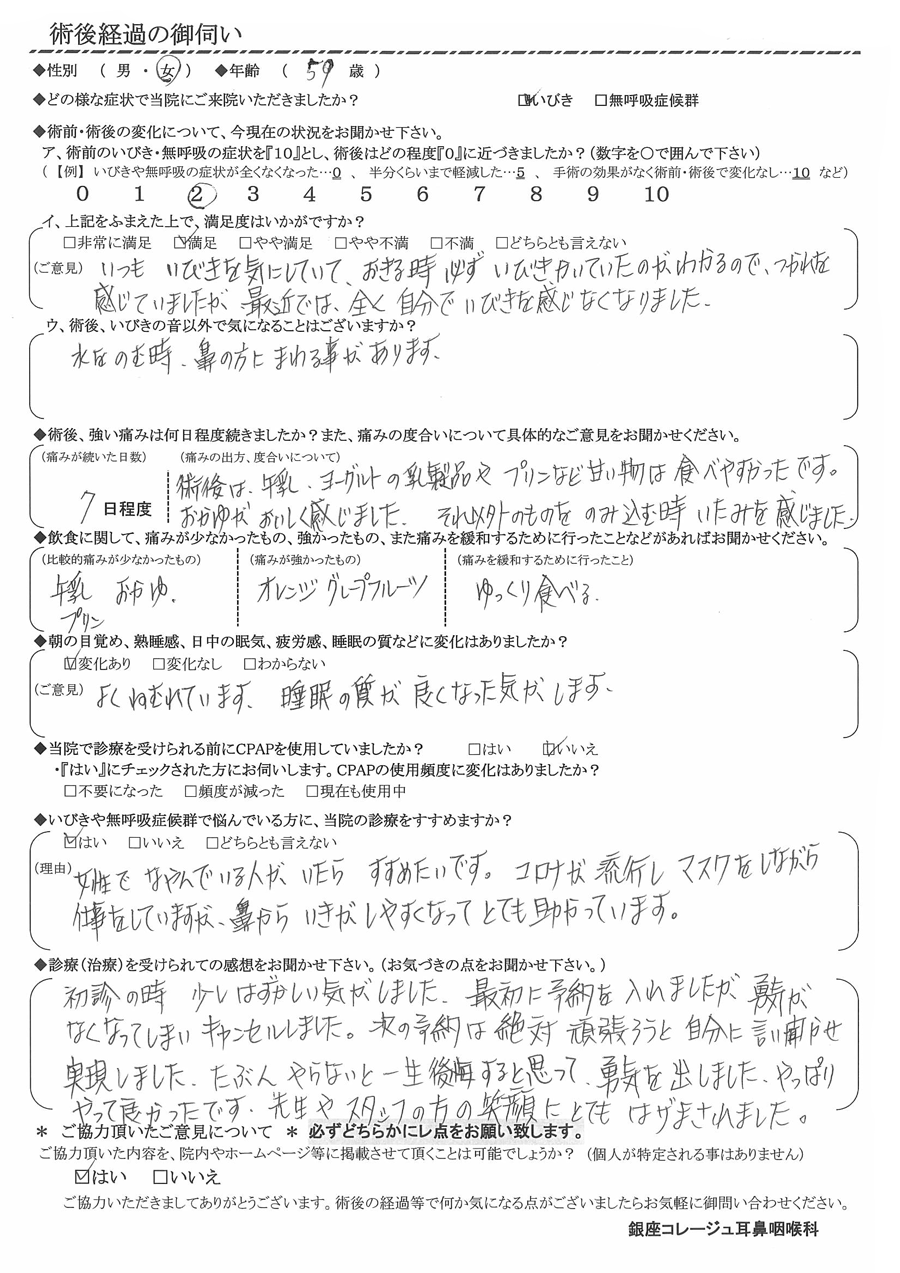 術後経過の御伺い
◆性別 ( 男 ・ 女 ) ◆年齢 ( 59 歳 )
◆どの様な症状で当院にご来院いただきましたか? ☑いびき □無呼吸症候群
◆術前・術後の変化について、今現在の状況をお聞かせ下さい。
ア、術前のいびき・無呼吸の症状を『10』とし、術後はどの程度『0』に近づきましたか?(数字を〇で囲んで下さい)
(【例】いびきや無呼吸の症状が全くなくなった…0 、 半分くらいまで軽減した…5 、 手術の効果がなく術前・術後で変化なし…10 など)
0 1 2 3 4 5 6 7 8 9 10
イ、上記をふまえた上で、満足度はいかがですか?
□非常に満足 ☑満足 □やや満足 □やや不満 □不満 □どちらとも言えない
(ご意見) いつも いびきを気にしていて、おきる時 必ず いびきかいていたのがわかるので、つかれを
感じていましたが、最近では、全く 自分で いびきを感じなくなりました。
ウ、術後、いびきの音以外で気になることはございますか?
水をのむ時、鼻の方に まわる事が あります。
◆術後、強い痛みは何日程度続きましたか?また、痛みの度合いについて具体的なご意見をお聞かせください。
(痛みが続いた日数) (痛みの出方、度合いについて)
術後は、牛乳、ヨーグルトの乳製品や プリンなど甘い物は 食べやすかったです。
7 日程度 おかゆが おいしく感じました。 それ以外のものを のみ込む時 いたみを感じました。
◆飲食に関して、痛みが少なかったもの、強かったもの、また痛みを緩和するために行ったことなどがあればお聞かせください。
(比較的痛みが少なかったもの) (痛みが強かったもの) (痛みを緩和するために行ったこと)
牛乳 おかゆ. オレンジ グレープフルーツ ゆっくり食べる.
プリン
◆朝の目覚め、熟睡感、日中の眠気、疲労感、睡眠の質などに変化はありましたか?
☑変化あり □変化なし □わからない
(ご意見) よくねむれています。 睡眠の質が 良くなった気が します。
◆当院で診療を受けられる前にCPAPを使用していましたか? □はい ☑いいえ
・『はい』にチェックされた方にお伺いします。CPAPの使用頻度に変化はありましたか?
□不要になった □頻度が減った □現在も使用中
◆いびきや無呼吸症候群で悩んでいる方に、当院の診療をすすめますか?
☑はい □いいえ □どちらとも言えない
(理由) 女性で なやんでいる人が いたら すすめたいです。 コロナが 流行し マスクをしながら
仕事をしていますが、鼻から いきが しやすくなって とても助かっています。
◆診療(治療)を受けられての感想をお聞かせ下さい。(お気づきの点をお聞かせ下さい。)
初診の時 少しはずかしい気がしました。 最初に予約を 入れましたが 勇気が
なくなってしまい キャンセルしました。 次の予約は 絶対 頑張ろうと 自分に 言い聞かせ
実現しました。 たぶん やらないと一生後悔すると思って、 勇気を出しました。 やっぱり
やって良かったです。 先生や スタッフの方の 笑顔に とても はげまされました。
＊ ご協力頂いたご意見について ＊ 必ずどちらかにレ点をお願い致します。
ご協力頂いた内容を、院内やホームページ等に掲載させて頂くことは可能でしょうか? (個人が特定される事はありません)
☑はい □いいえ
ご協力いただきましてありがとうございます。術後の経過等で何か気になる点がございましたらお気軽に御問い合わせください。
銀座コレージュ耳鼻咽喉科